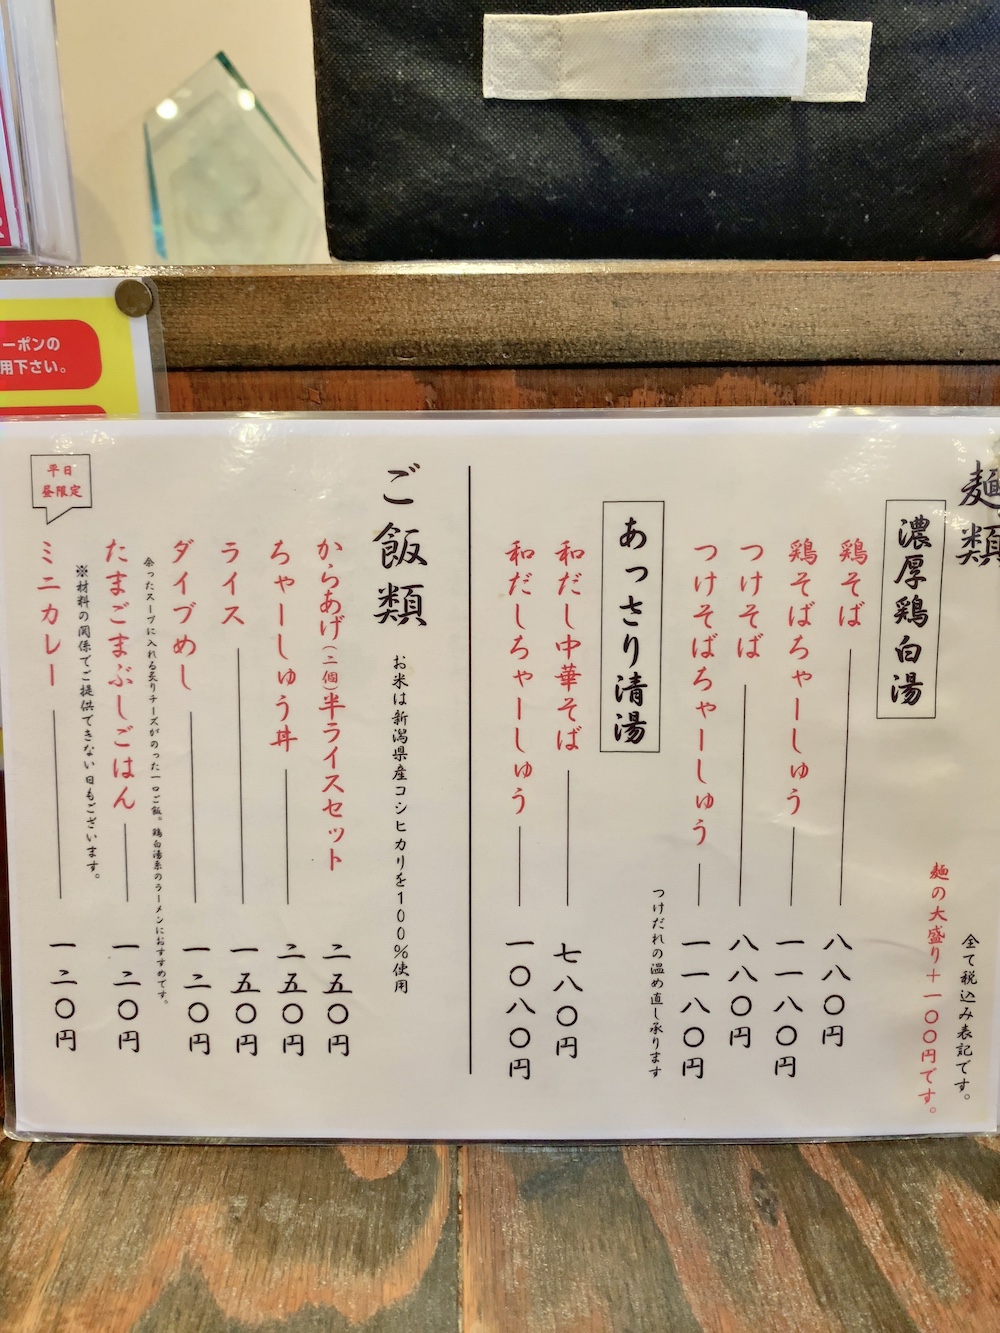 麺類
全て税込み表記です。
麺の大盛り＋一〇〇円です。
濃厚鶏白湯
鶏そば 八八〇円
鶏そばちゃーしゅう 一一八〇円
つけそば 八八〇円
つけそばちゃーしゅう 一一八〇円
つけだれの温め直し承ります
あっさり清湯
和だし中華そば 七八〇円
和だしちゃーしゅう 一〇八〇円
ご飯類
お米は新潟県産コシヒカリを100%使用
からあげ（二個）半ライスセット 二五〇円
ちゃーしゅう丼 二五〇円
ライス 一五〇円
ダイブめし 一二〇円
余ったスープに入れる炙りチーズがのった一口ご飯。鶏白湯系のラーメンにおすすめです。
たまごまぶしごはん 一二〇円
※材料の関係でご提供できない日もございます。
平日
昼限定
ミニカレー 一二〇円
ーポンの
用下さい。